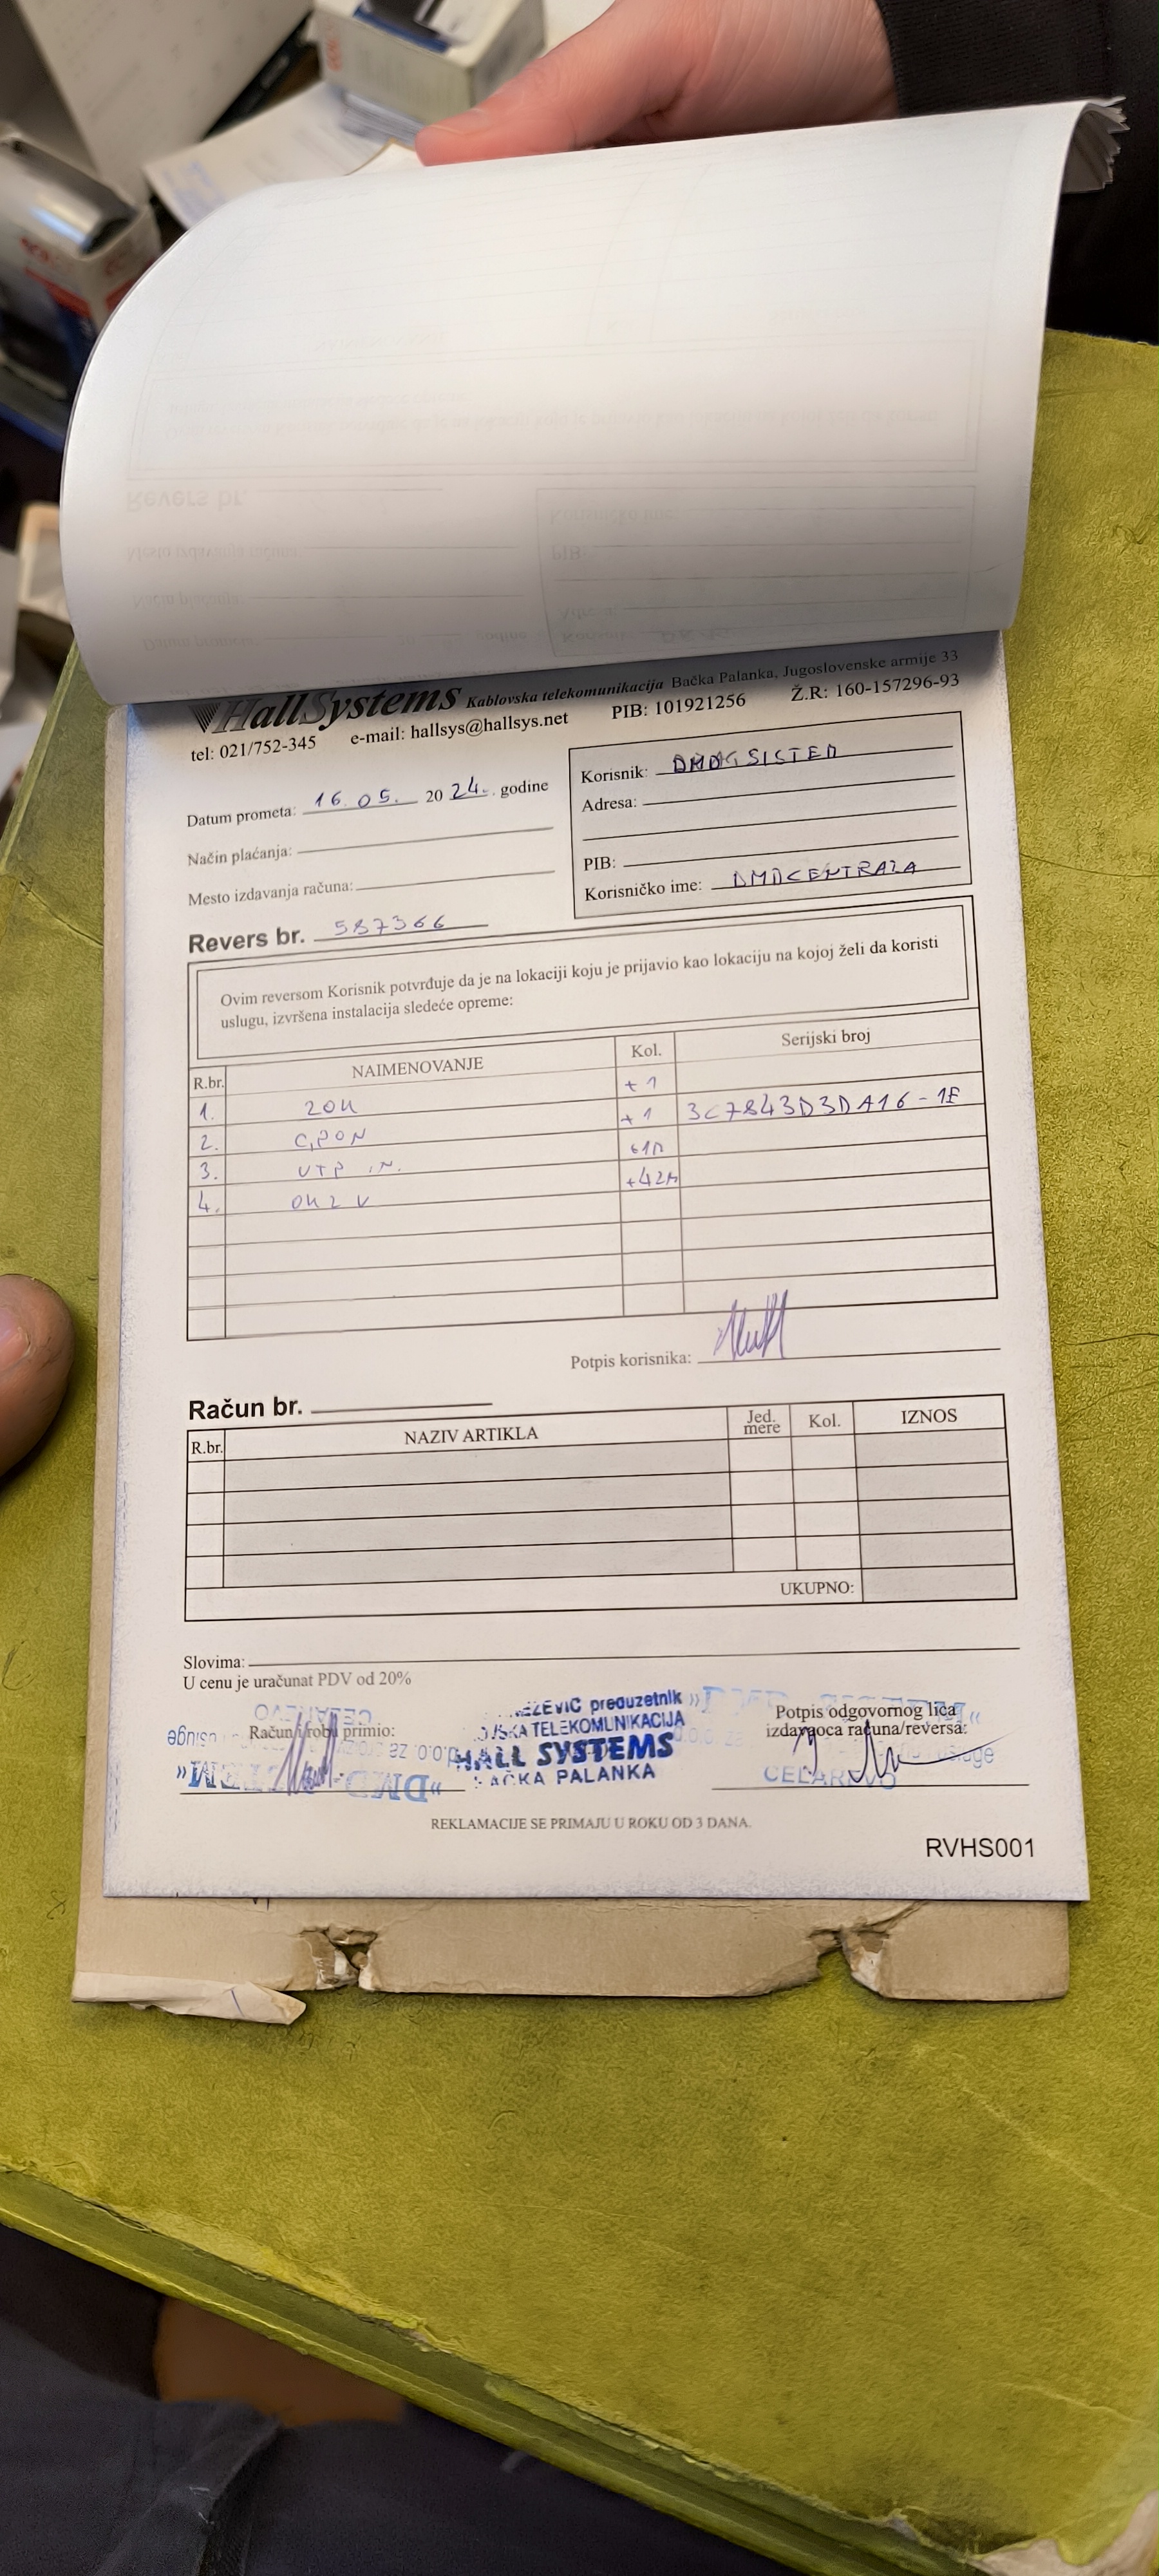 HallSystems Kablovska telekomunikacija Bačka Palanka, Jugoslovenske armije 33
tel: 021/752-345 e-mail: hallsys@hallsys.net PIB: 101921256 Ž.R: 160-157296-93
Datum prometa: 16.05. 2024. godine
Način plaćanja:
Mesto izdavanja računa:
Korisnik: SISTEM
Adresa:
PIB:
Korisničko ime: DMDCENTRALA
Revers br. 587366
Ovim reversom Korisnik potvrđuje da je na lokaciji koju je prijavio kao lokaciju na kojoj želi da koristi
uslugu, izvršena instalacija sledeće opreme:
R.br. NAIMENOVANJE Kol. Serijski broj
1. ZOK +1
2. GPON +1 3C7843D3DA16-1E
3. UTP IN.
4. +42M
Potpis korisnika:
Račun br.
R.br. NAZIV ARTIKLA Jed. mere Kol. IZNOS
UKUPNO:
Slovima:
U cenu je uračunat PDV od 20%
Račun i robu primio:
preduzetnik
TELEKOMUNIKACIJA
HALL SYSTEMS
BAČKA PALANKA
Potpis odgovornog lica
izdavaoca računa/reversa:
CELAREVO
REKLAMACIJE SE PRIMAJU U ROKU OD 3 DANA.
RVHS001